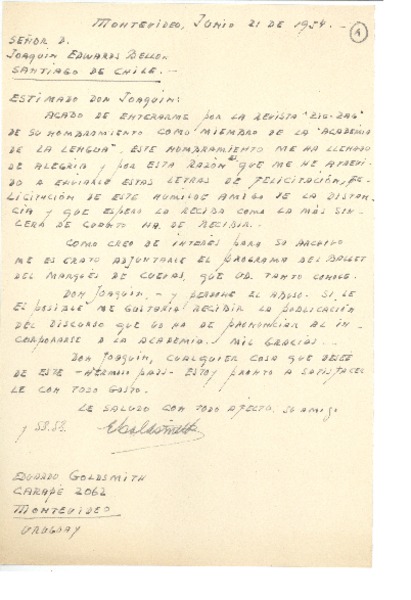 Montevideo, Junio 21 de 1954.-
Señor D.
Joaquin Edwards Bello.
Santiago de Chile.-
Estimado Don Joaquin:
Acabo de enterarme por la revista "Zig-Zag"
de su nombramiento como miembro de la "Academia
de la Lengua". Este nombramiento me ha llenado
de alegría y por esta razón es que me he atrevi-
do a enviarle estas letras de felicitación, fe-
licitación de este humilde amigo de la distan-
cia y que espero la reciba como la más sin-
cera de cuanto ha de recibir.
Como creo de interés para su archivo
me es grato adjuntarle el programa del Ballet
del Marqués de Cuevas, que Ud. tanto conoce.
Don Joaquin, - y perdone el abuso. Si le
es posible me gustaría recibir la publicación
del discurso que Ud ha de pronunciar al in-
corporarse a la Academia. Mil gracias.-
Don Joaquin, cualquier cosa que desee
de este -hermoso país- estoy pronto a satisfacer
le con todo gusto.
Le saludo con todo afecto, su amigo
y SS.SS.
Eduardo Goldsmith
Carapé 2062
Montevideo
Uruguay